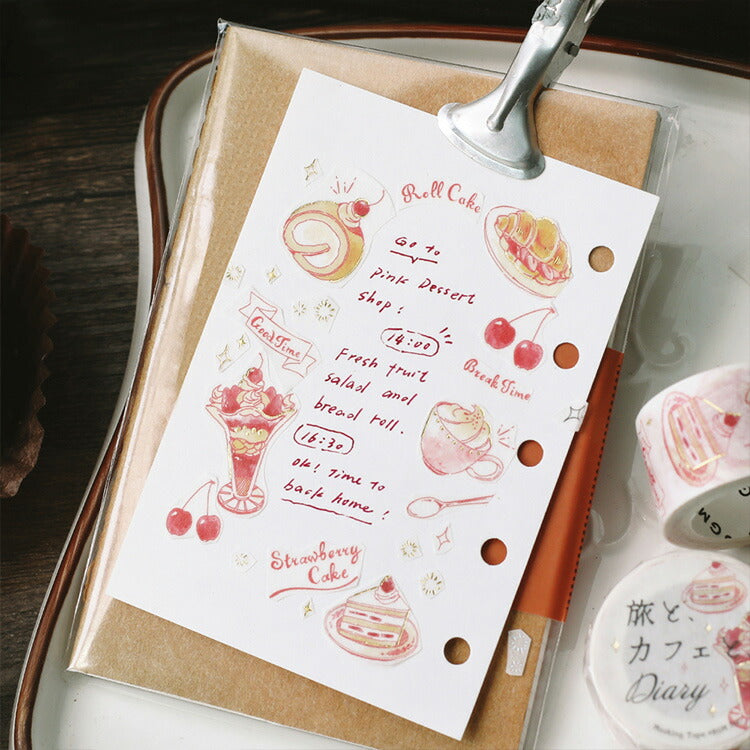 Roll Cake
Go to
pink Dessert
shop!
14:00
Good Time
Fresh fruit
salad and
bread roll.
Break Time
16:30
ok! Time to
back home!
Strawberry
Cake
BGM
旅と、
カフェと
Diary
Masking Tape